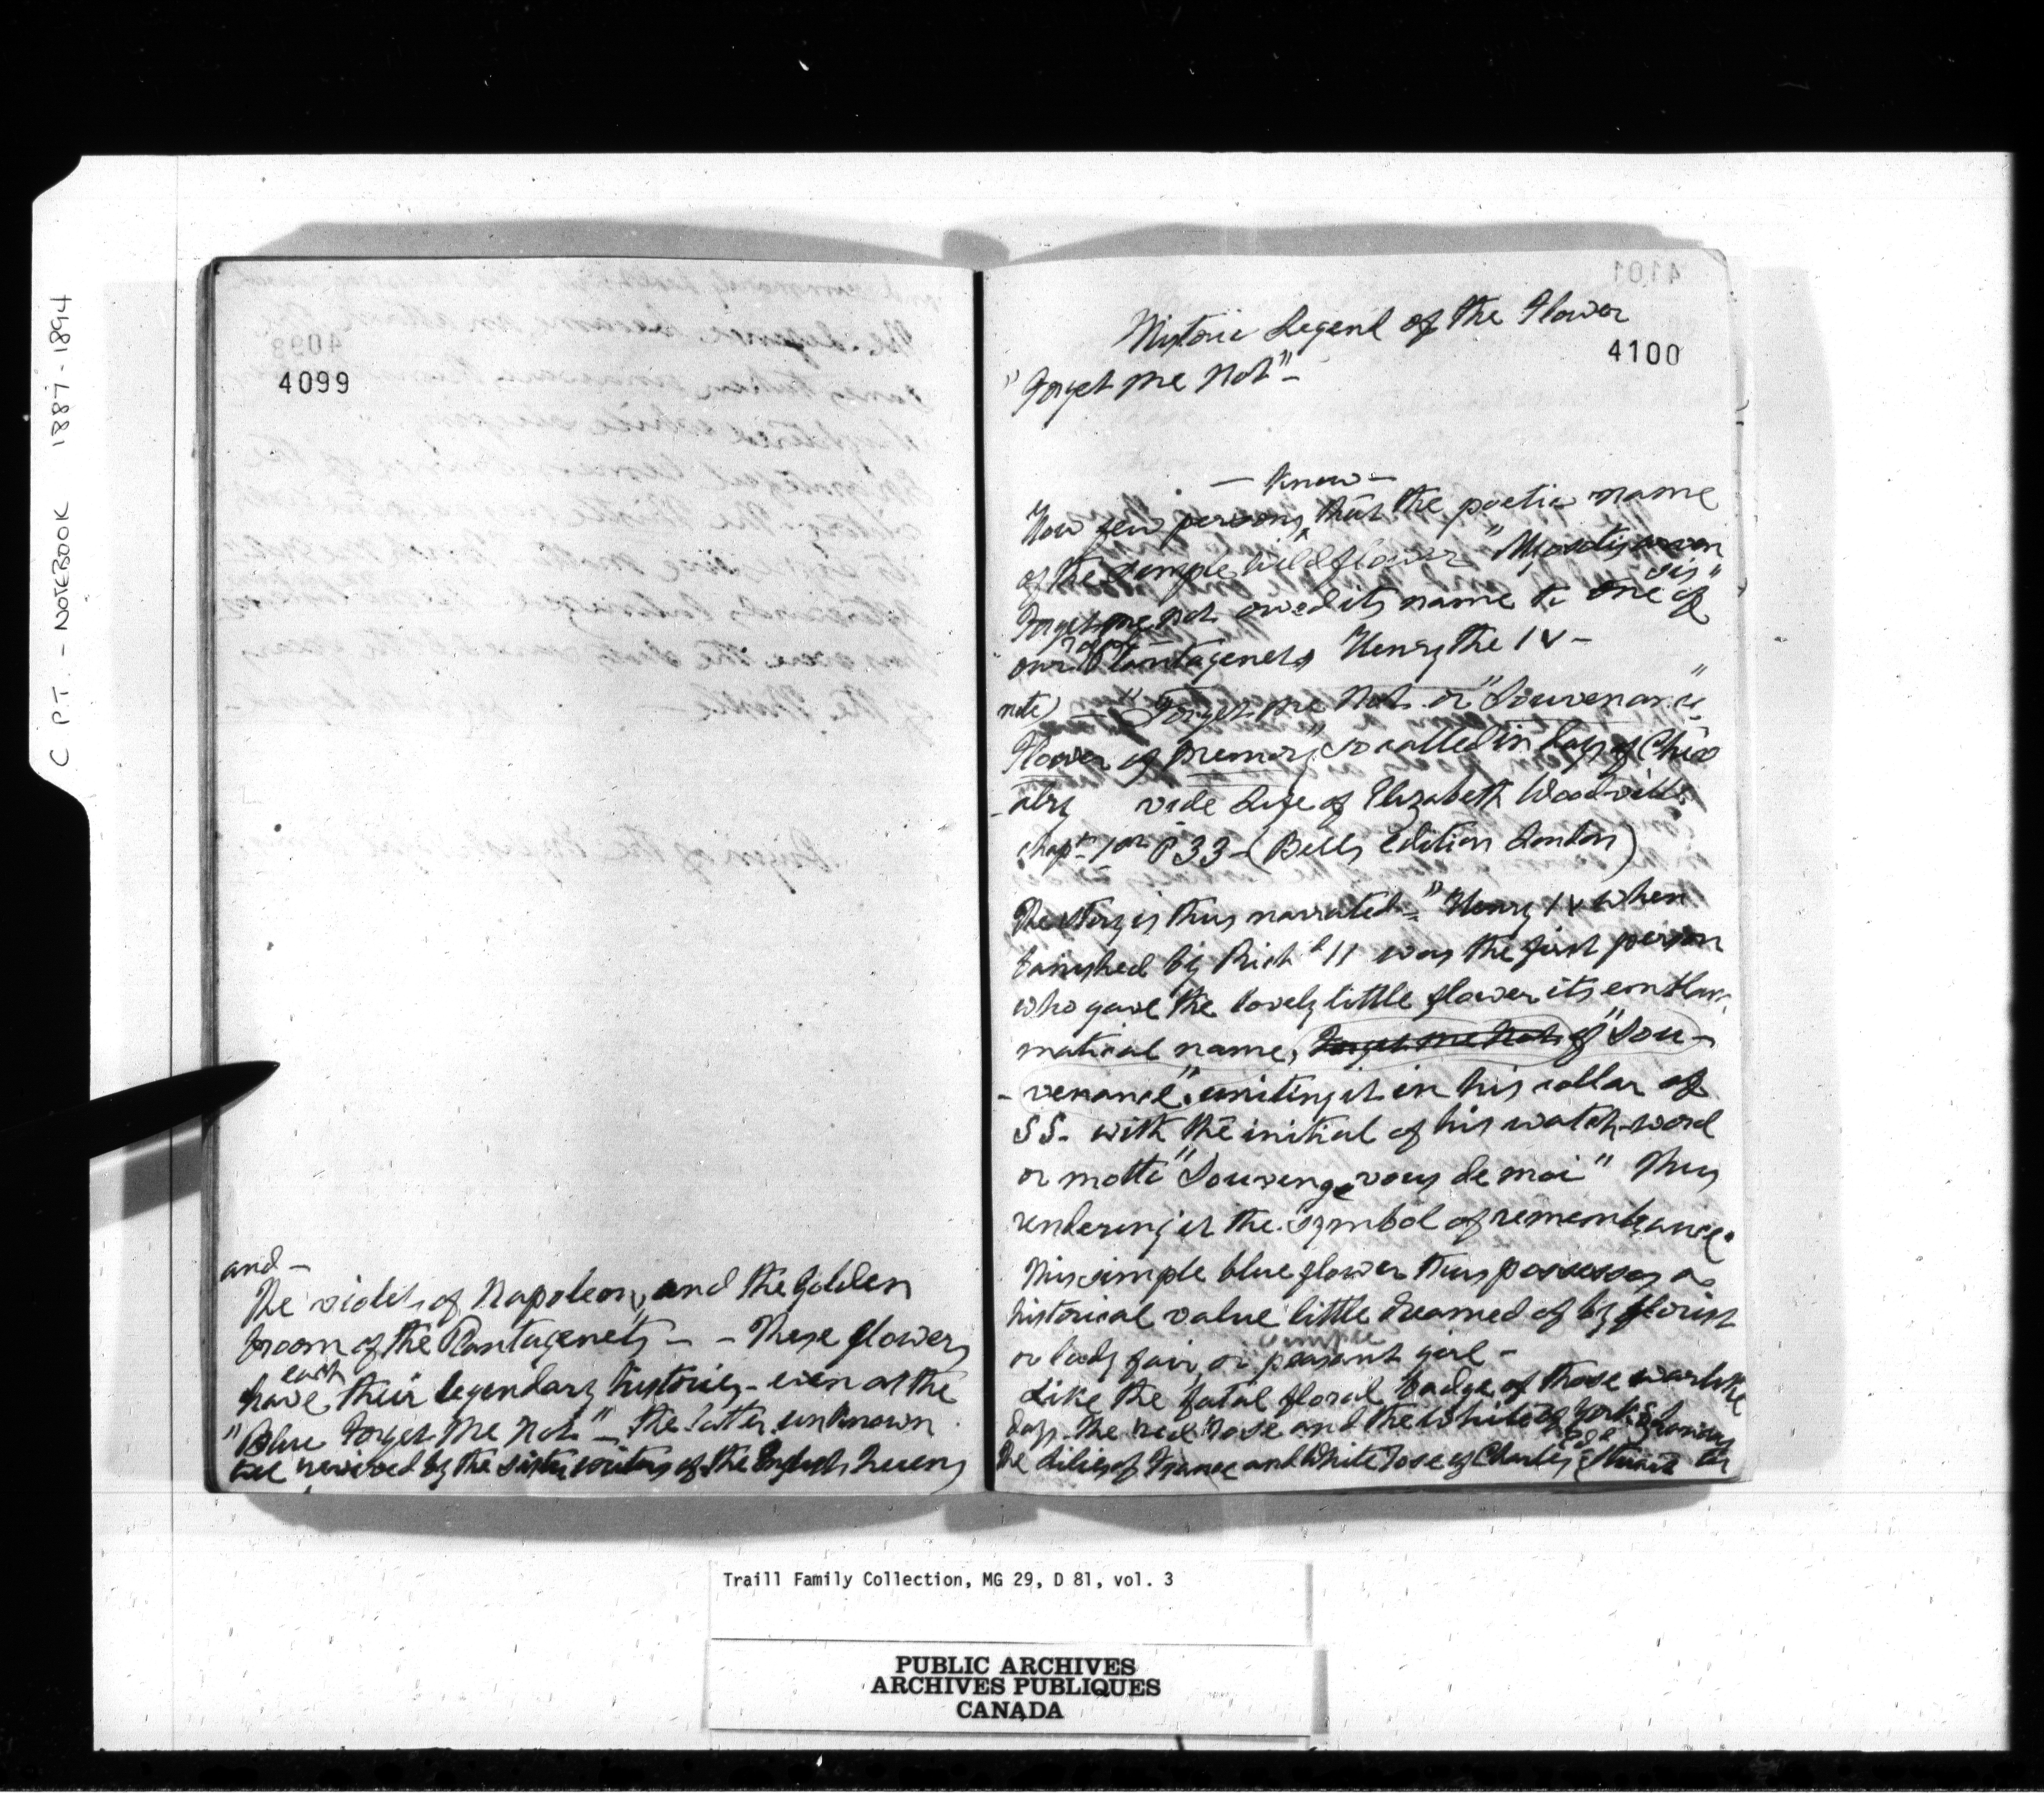 C P.T. - NOTEBOOK 1887-1894
4099
and -
The violets of Napoleon, and the Golden
broom of the Plantagenets - - These flowers
each
have their legendary histories - even as the
"Blue Forget Me Not" - the latter unknown
till revived by the sister writers of the English Queens
4101
Historic Legend of the Flower
4100
"Forget me Not" -
- know -
How few persons that the poetic name
of the simple wildflower "Myosotis arven
sis"
Forget me not owed its name to one of
our Plantagenets Henry the IV -
note) - "Forget me Not or "Souvenance"
Flower of Memory" so called in days of Chiv
-alry vide Life of Elizabeth Woodville
chapr 1 P 33 - (Bells Edition London)
The story is thus narrated - "Henry IV when
banished by Richd II was the first person
who gave the lovely little flower its emble-
matical name, Forget me Not of "Sou-
-venance" uniting it in his collar of
SS. with the initial of his watch-word
or motto "Souvenge vous de moi" Thus
rendering it the symbol of remembrance.
This simple blue flower thus possesses a
historical value little dreamed of by florist
simple
or lady fair, or peasant girl -
Like the fatal floral badge of those warlike
days - the red rose and the White of York &
The Lilies of France and White rose of Charles Stuart
Traill Family Collection, MG 29, D 81, vol. 3
PUBLIC ARCHIVES
ARCHIVES PUBLIQUES
CANADA